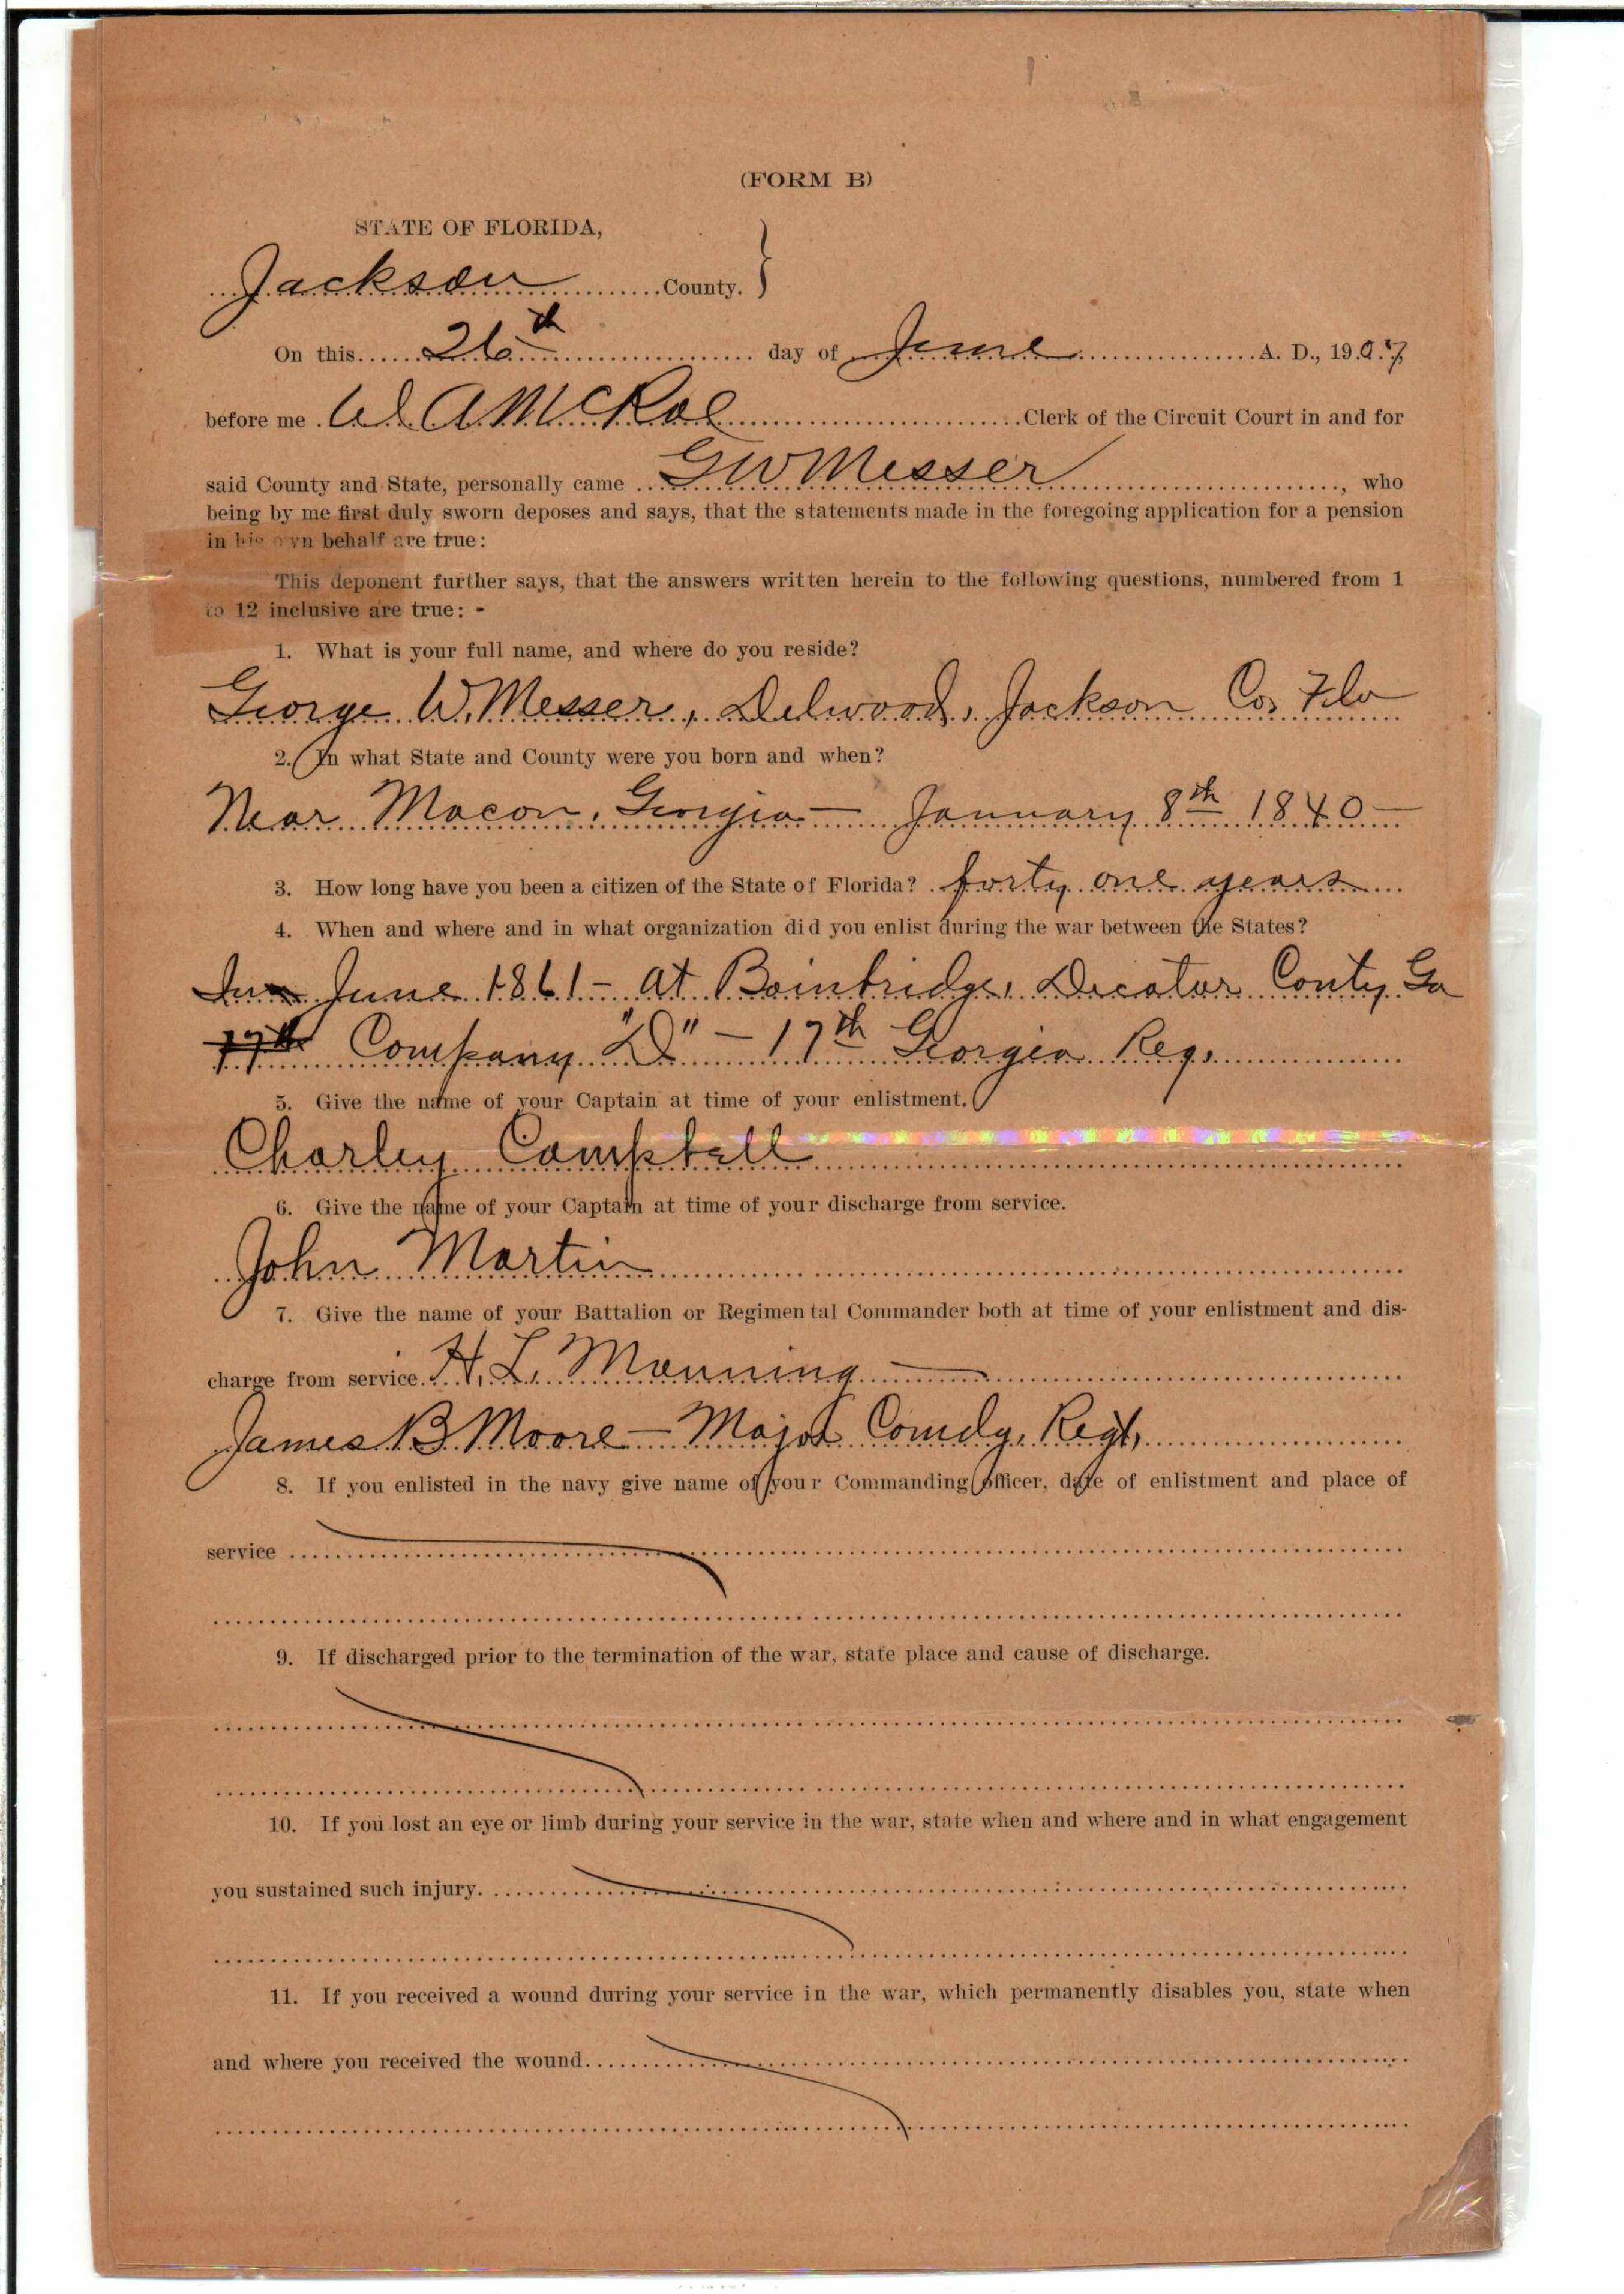 (FORM B)
STATE OF FLORIDA,
Jackson County. }
On this 26th day of June A. D., 1907
before me W A McRae Clerk of the Circuit Court in and for
said County and State, personally came G W Messer, who
being by me first duly sworn deposes and says, that the statements made in the foregoing application for a pension
in his own behalf are true:
This deponent further says, that the answers written herein to the following questions, numbered from 1
to 12 inclusive are true: -
1. What is your full name, and where do you reside?
George W. Messer, Delwood, Jackson Co, Fla
2. In what State and County were you born and when?
Near Macon, Georgia — January 8th 1840 —
3. How long have you been a citizen of the State of Florida? forty one years
4. When and where and in what organization did you enlist during the war between the States?
In June 1861 - at Bainbridge, Decatur Conty, Ga
17th Company "D" — 17th Georgia Reg.
5. Give the name of your Captain at time of your enlistment.
Charley Campbell
6. Give the name of your Captain at time of your discharge from service.
John Martin
7. Give the name of your Battalion or Regimental Commander both at time of your enlistment and dis-
charge from service. H. L. Manning —
James B Moore — Major Comdg. Regt,
8. If you enlisted in the navy give name of your Commanding officer, date of enlistment and place of
service
9. If discharged prior to the termination of the war, state place and cause of discharge.
10. If you lost an eye or limb during your service in the war, state when and where and in what engagement
you sustained such injury.
11. If you received a wound during your service in the war, which permanently disables you, state when
and where you received the wound.